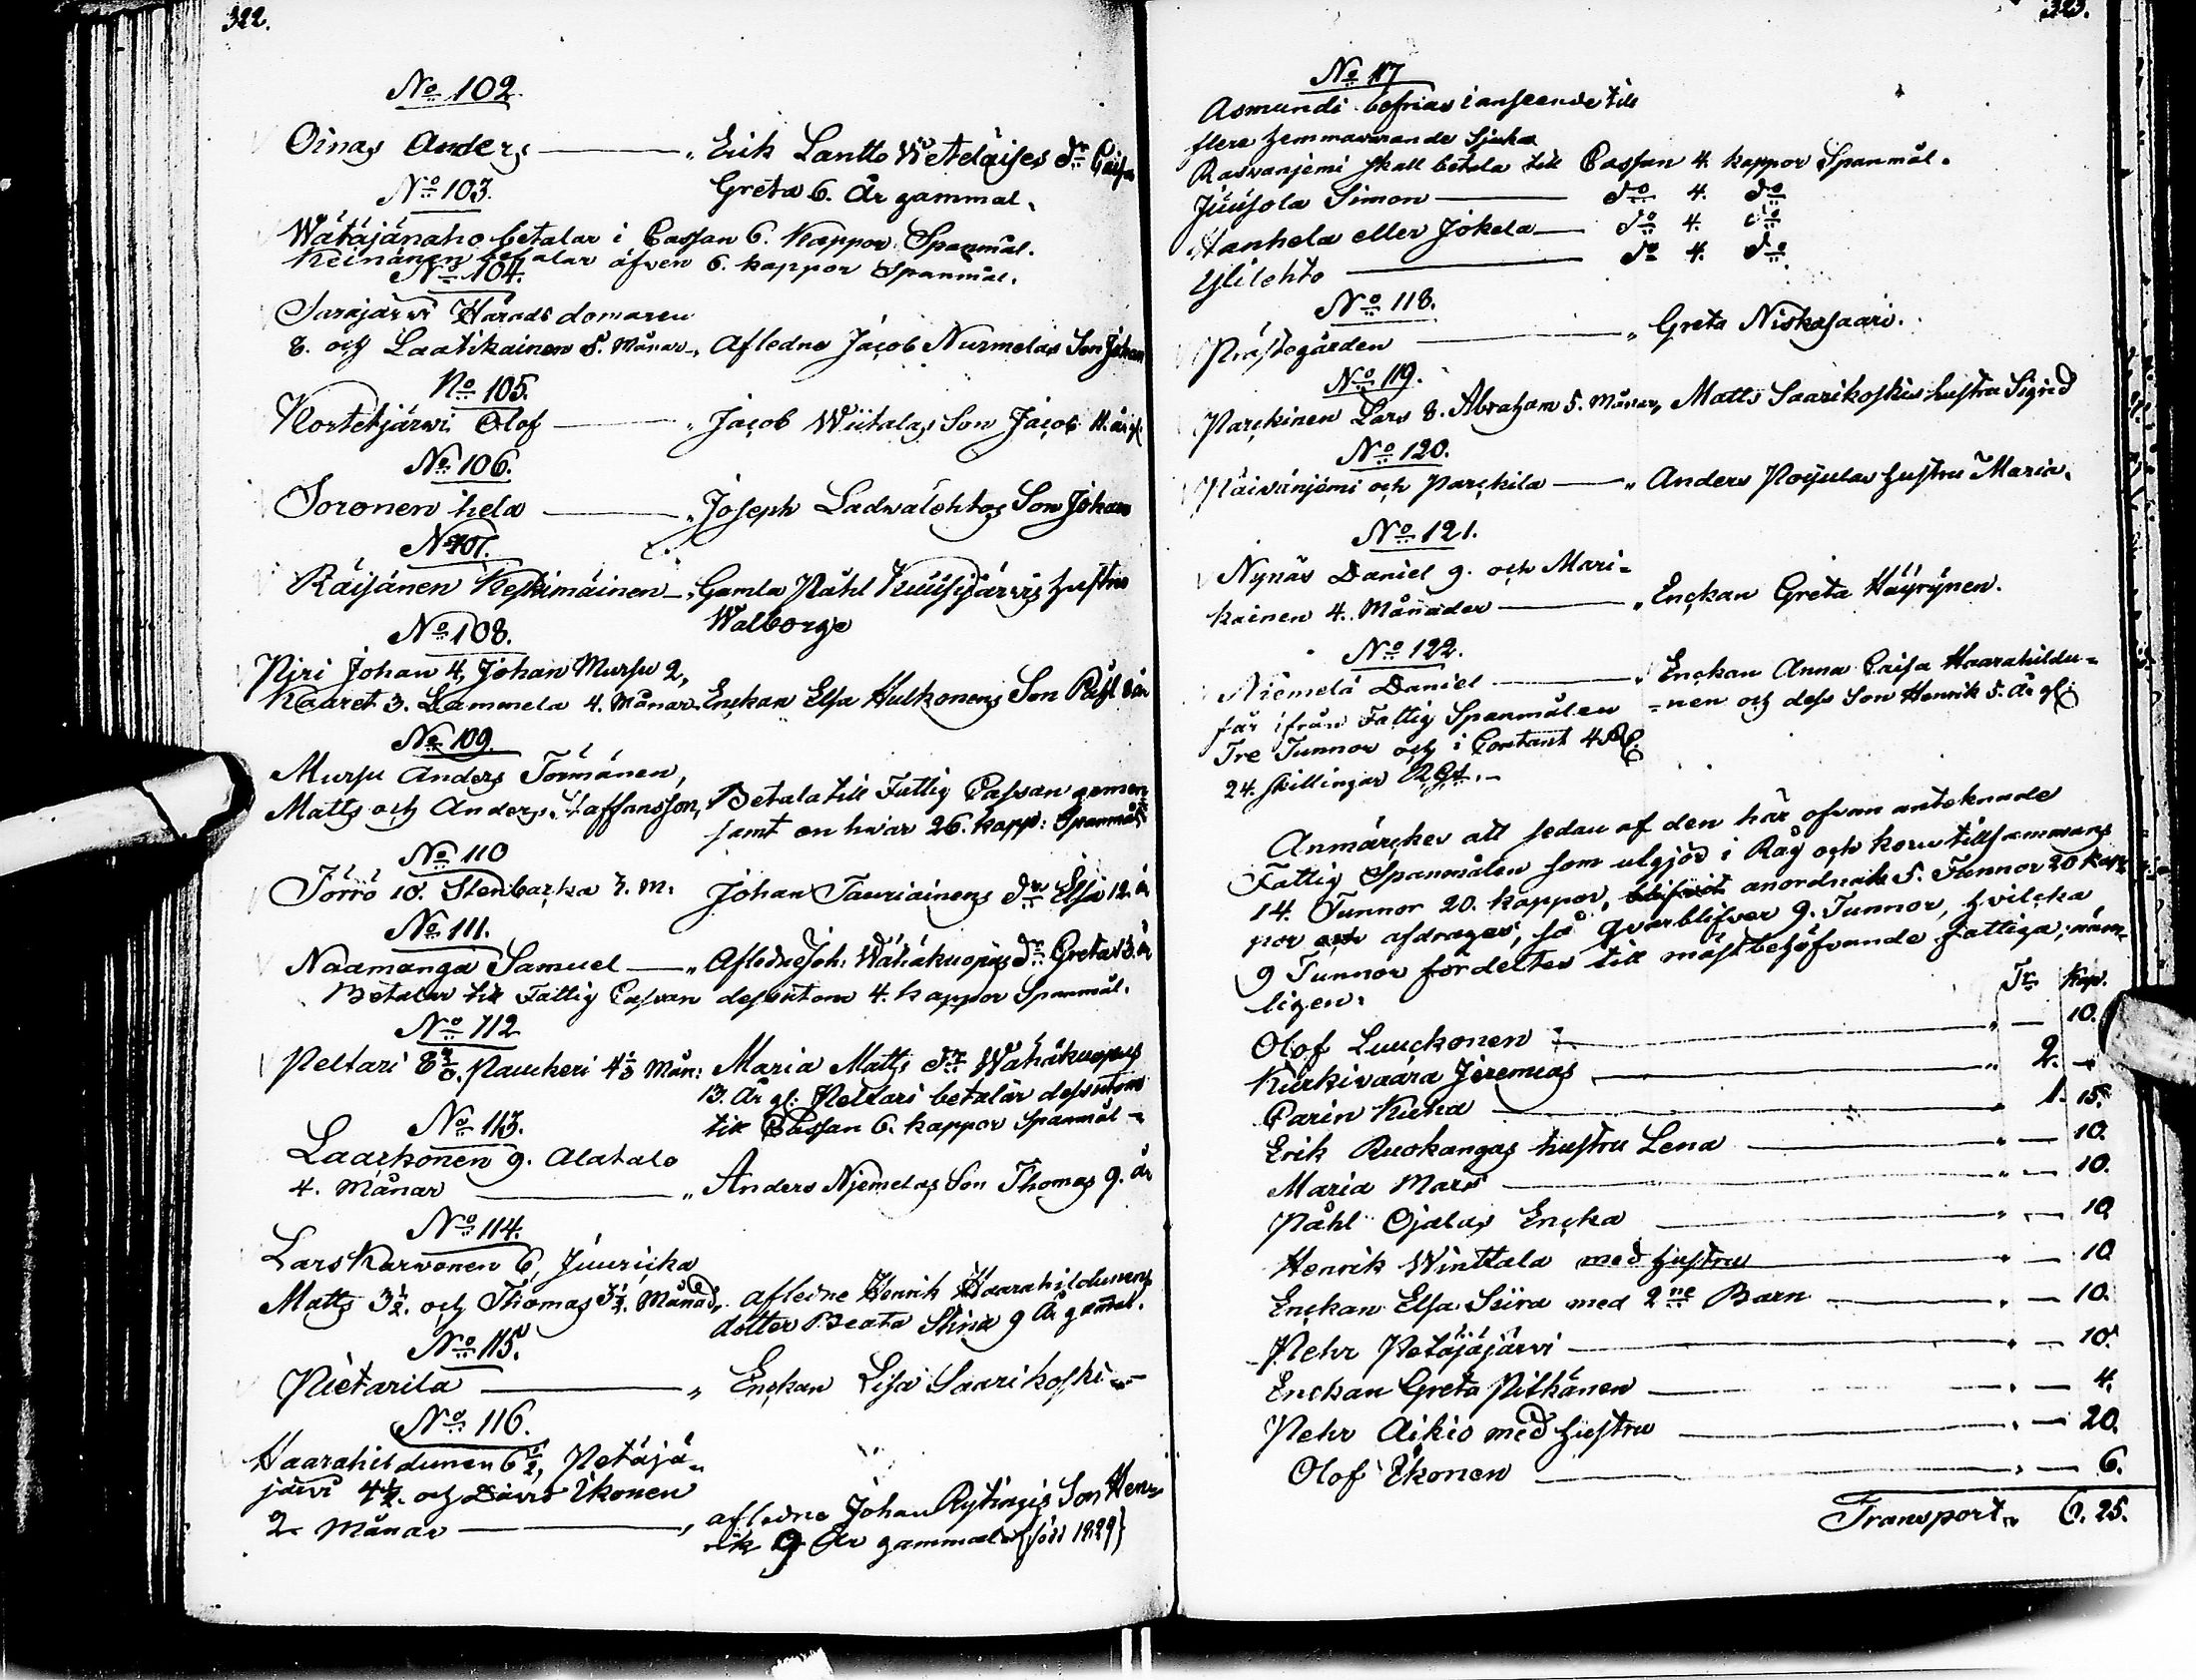 322.
No 102.
Oinas Anders — „ Erik Lantto Wietaläises dr Caisa
Greta 6. År gammal.
No 103.
Wätäjänaho betalar i Cassan 6. kappor Spanmål.
Keinänen betalar äfven 6. kappor Spanmål.
No 104.
Sarajärvi Härads domaren
8. och Laatikainen 5. Månar „ Afledne Jacob Nurmelas Son Johan
No 105.
Kortetjärvi Olof — „ Jacob Wiitalas Son Jacob 11. år gl.
No 106.
Soronen hela — „ Joseph Ladvalehtos Son Johan
No 107.
Räisänen Keskimäinen — „ Gamla Påhl Kuusijärvis hustru
Walborg
No 108.
Piri Johan 4, Johan Mursu 2,
Kaaret 3. Lammela 4. Månar Enckan Elsa Hulkonens Son Påhl
No 109.
Mursu Anders Törmänen,
Matts och Anders Staffansson, Betala till Fattig Cassan gemen
samt en hvar 26. kapp: Spanmål
No 110
Törrö 10. Stenbacka 2. M: Johan Tauriainens dr Elsa 12. år
No 111.
Naamanga Samuel — „ Afledne Joh: Wähäkuopus dr Greta 13. år
Betalar till Fattig Cassan dessutom 4. kappor Spanmål.
No 112
Peltari Pauckeri Mån: Maria Matts dr Wähäkuopus
13. År gl: Peltari betalar dessutom
till Cassan 6. kappor Spanmål
No 113.
Laackonen 9. Alatalo
4. Månar — „ Anders Niemelas Son Thomas 9. år
No 114.
Lars Karvonen 6, Juuricka
Matts 3½. och Thomas 3½. Månad, afledne Henrik Haarahildunens
dotter Beata Stina 9 År gammal.
No 115.
Pietarila — „ Enckan Lisa Saarikoski
No 116.
Haarahildunen 6½, Petäjä-
järvi 4½. och David Ikonen
2 Månar — , afledne Johan Rytingis Son Hen-
rik 9 År gammal (född 1829)
323.
No 117
Asmundi befrias i anseende till
flere hemmavarande Sjuka
Rasvanjemi skall betala till Cassan 4. kappor Spanmål.
Juusola Simon — do 4. do
Hanhela eller Jokela — do 4. do
Ylilehto — do 4. do
No 118.
Prästegården — „ Greta Niskasaari.
No 119.
Parckinen Lars 8. Abraham 5. Månar, Matts Saarikoskis hustru Sigrid
No 120.
Päivänjemi och Parckila — „ Anders Poijulas hustru Maria.
No 121.
Nynäs Daniel 9. och Mari-
kainen 4. Månader — „ Enckan Greta Häyrynen.
No 122.
Niemelä Daniel — „ Enckan Anna Caisa Haarahildu-
får ifrån Fattig Spanmålen =nen och dess Son Henrik 5. År gl:
Tre Tunnor och i Contant 4 R
24. skillingar RGd.
Anmärckes att sedan af den här ofvan anteknade
Fattig Spanmålen som utgjöd i Råg och korn tillsammans
14. Tunnor 20. kappor, blifvit anordnade 5. Tunnor 20 kap-
por afdrages, så qvarblifver 9. Tunnor, hvilcka
9 Tunnor fördeltes till mäst behöfvande fattiga, näm-
ligen:
Tr Kap.
Olof Luuckonen — „ — 10.
Kurkivaara Jeremias — „ 2. —
Carin Kuha — 1. 15.
Erik Ruokangas hustru Lena — „ — 10.
Maria Mars — „ — 10.
Påhl Ojalas Encka — „ — 10
Henrik Winttala med hustru — „ — 10
Enckan Elsa Siira med 2ne Barn — „ — 10.
Pehr Petäjäjärvi — „ — 10.
Enckan Greta Pitkänen — „ — 4.
Pehr Aikio med hustru — „ — 20.
Olof Ikonen — „ — 6.
Transport „ 6. 25.